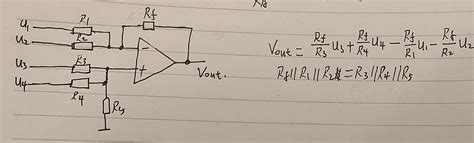 U1 R1 Rf
U2 R2
U3 R3
U4 R4
R5
- +
Vout.
Vout = Rf/R3 U3 + Rf/R4 U4 - Rf/R1 U1 - Rf/R2 U2
Rf//R1//R2 = R3//R4//R5